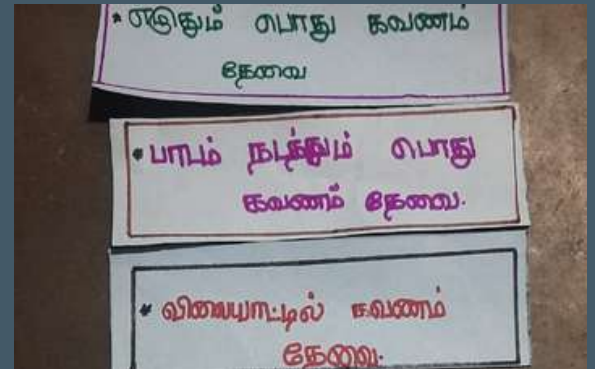 * எழுதும் பொது கவணம்
தேவை
* பாடம் நடத்தும் பொது
கவணம் தேவை.
* விளையாட்டில் கவணம்
தேவை.